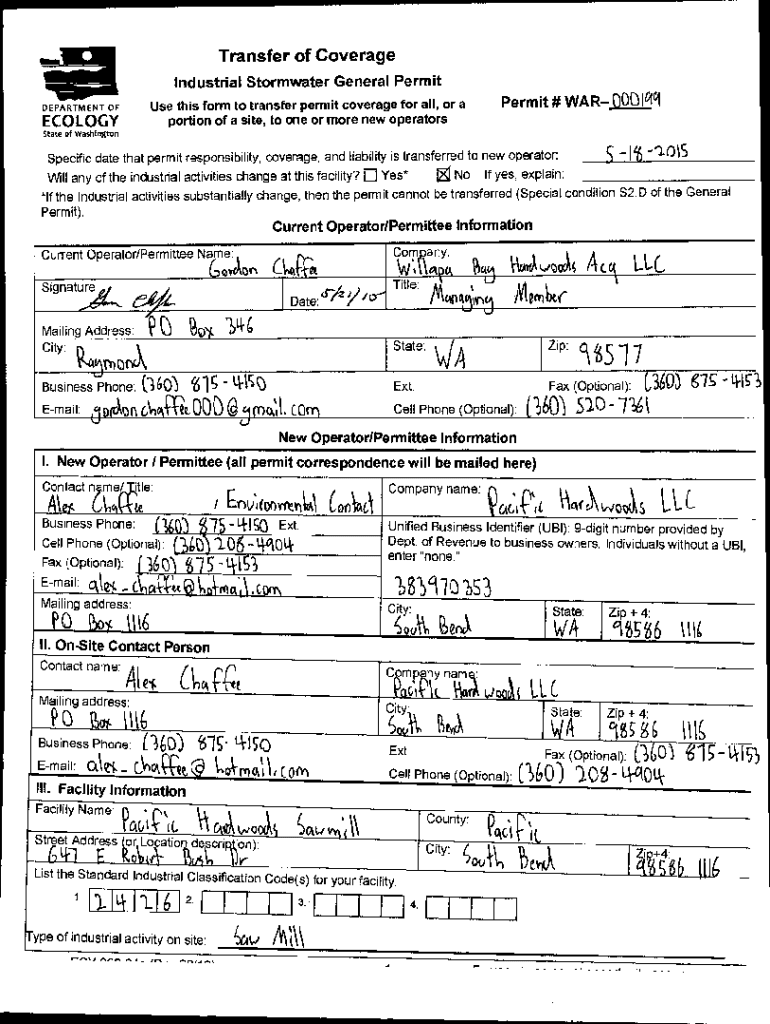 Transfer of Coverage
Industrial Stormwater General Permit
DEPARTMENT OF
ECOLOGY
State of Washington
Use this form to transfer permit coverage for all, or a
portion of a site, to one or more new operators
Permit # WAR–000199
Specific date that permit responsibility, coverage, and liability is transferred to new operator: 5-18-2015
Will any of the industrial activities change at this facility? ☐ Yes* ☒ No If yes, explain:
*If the Industrial activities substantially change, then the permit cannot be transferred (Special condition S2.D of the General
Permit).
Current Operator/Permittee Information
Current Operator/Permittee Name: Gordon Chaffee Company: Willapa Bay Hardwoods Acq LLC
Signature Date: 5/21/15 Title: Managing Member
Mailing Address: PO Box 346
City: Raymond State: WA Zip: 98577
Business Phone: (360) 875-4150 Ext. Fax (Optional): (360) 875-4153
E-mail: gordonchaffee000@gmail.com Cell Phone (Optional): (360) 520-7361
New Operator/Permittee Information
I. New Operator / Permittee (all permit correspondence will be mailed here)
Contact name/ Title: Alex Chaffee / Environmental Contact Company name: Pacific Hardwoods LLC
Business Phone: (360) 875-4150 Ext.
Cell Phone (Optional): (360) 208-4904
Fax (Optional): (360) 875-4153
Unified Business Identifier (UBI): 9-digit number provided by
Dept. of Revenue to business owners. Individuals without a UBI,
enter "none."
E-mail: alex_chaffee@hotmail.com 383970353
Mailing address: PO Box 1116 City: South Bend State: WA Zip + 4: 98586 1116
II. On-Site Contact Person
Contact name: Alex Chaffee Company name: Pacific Hardwoods LLC
Mailing address: PO Box 1116 City: South Bend State: WA Zip + 4: 98586 1116
Business Phone: (360) 875-4150 Ext Fax (Optional): (360) 875-4153
E-mail: alex_chaffee@hotmail.com Cell Phone (Optional): (360) 208-4904
III. Facility Information
Facility Name: Pacific Hardwoods Sawmill County: Pacific
Street Address (or Location description): 647 E Robert Bush Dr City: South Bend Zip+4: 98586 1116
List the Standard Industrial Classification Code(s) for your facility.
1 2426 2. 3. 4.
Type of industrial activity on site: Saw Mill